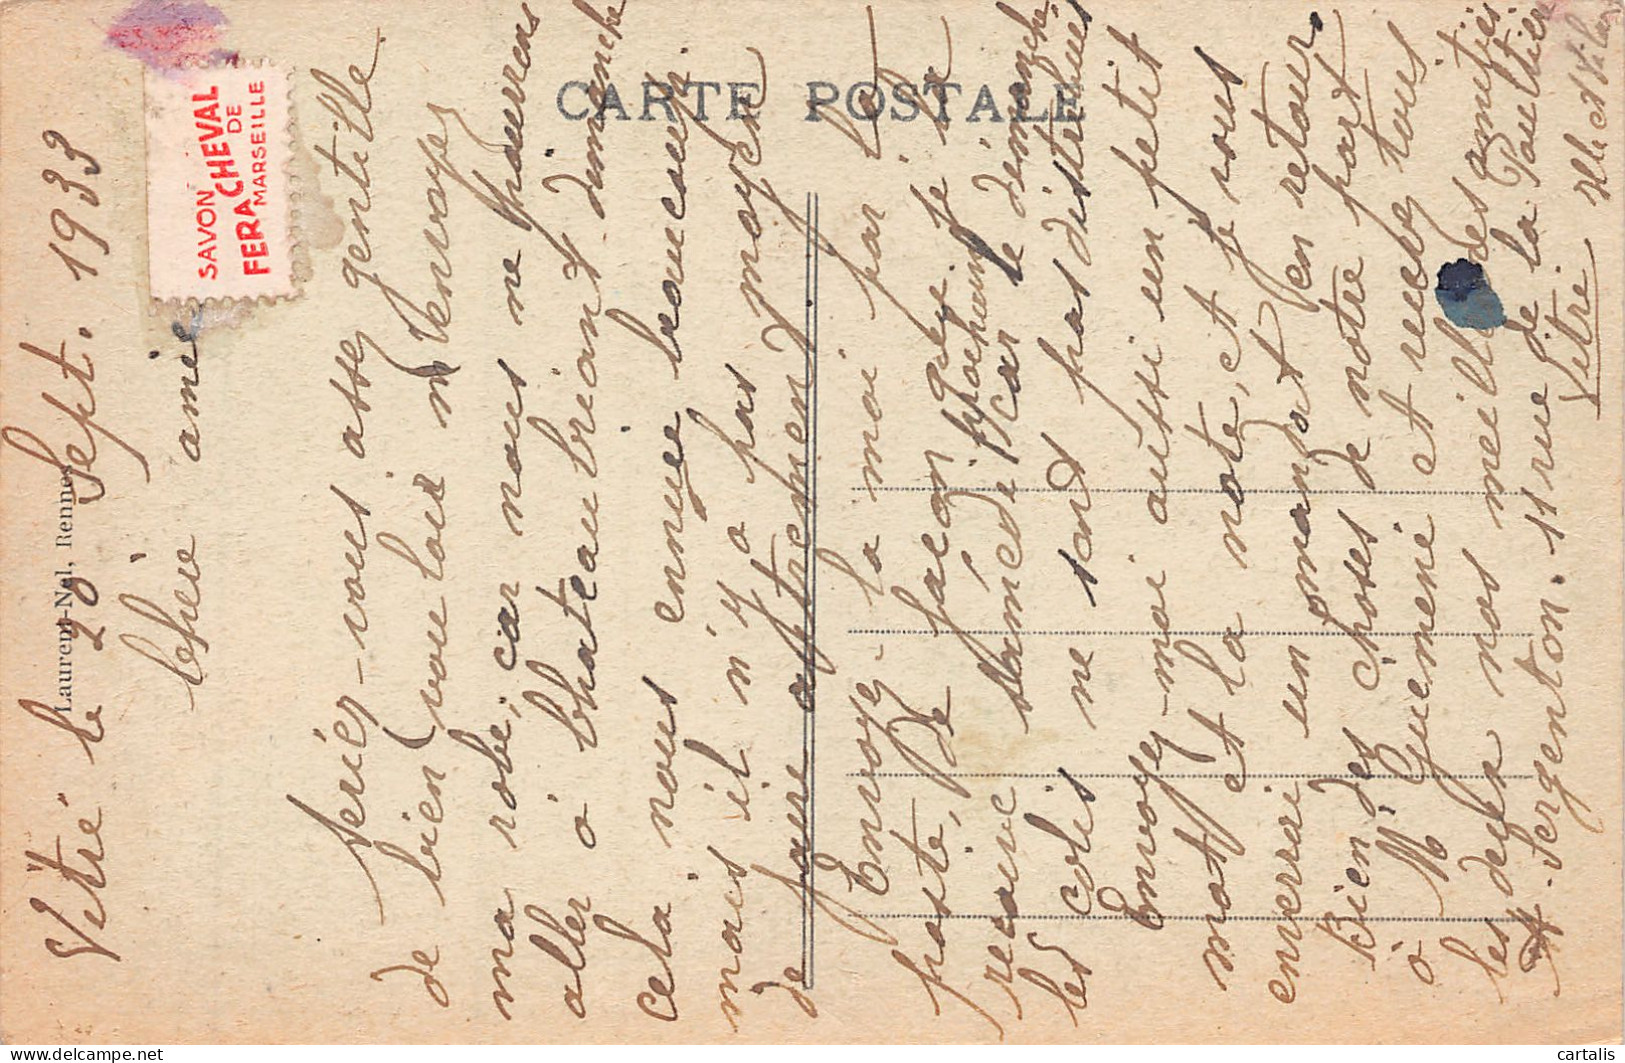 CARTE POSTALE
Laurent-Nel, Rennes
SAVON
FER A CHEVAL
DE
MARSEILLE
Vitré le 28 Sept. 1933
Chère amie
Seriez-vous assez gentille
de bien vouloir m'envoyez
ma robe, car nous ne pourrons
aller à Chateaubriant dimanche
cela nous ennuye beaucoup
mais il n'y a pas moyen
de faire autrement
Envoyez-la moi par la
poste, de façon que je la
reçoive samedi prochain car le dimanche
les colis ne sont pas distribués
Envoyez-moi aussi un petit
mot et la note, et je vous
enverrai un mandat en retour
Bien des choses de notre part
à M Guémené et recevez tous
les deux nos meilleures amitiés
A. Sergenton. 11 rue de la Poultière
Vitré
Ille et Vilaine
cartalis
delcampe.net